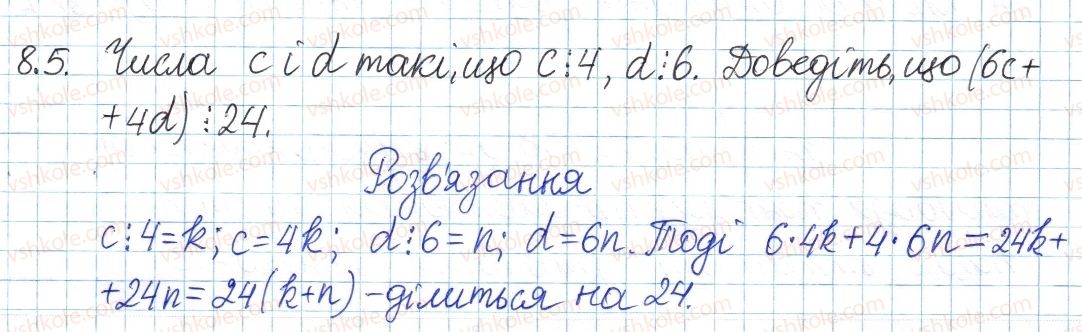 8.5. Числа c і d такі, що c⋮4, d⋮6. Доведіть, що (6c+
+4d)⋮24.
Розв'язання
c⋮4=k; c=4k; d⋮6=n; d=6n. Тоді 6·4k+4·6n=24k+
+24n=24(k+n)-ділиться на 24.